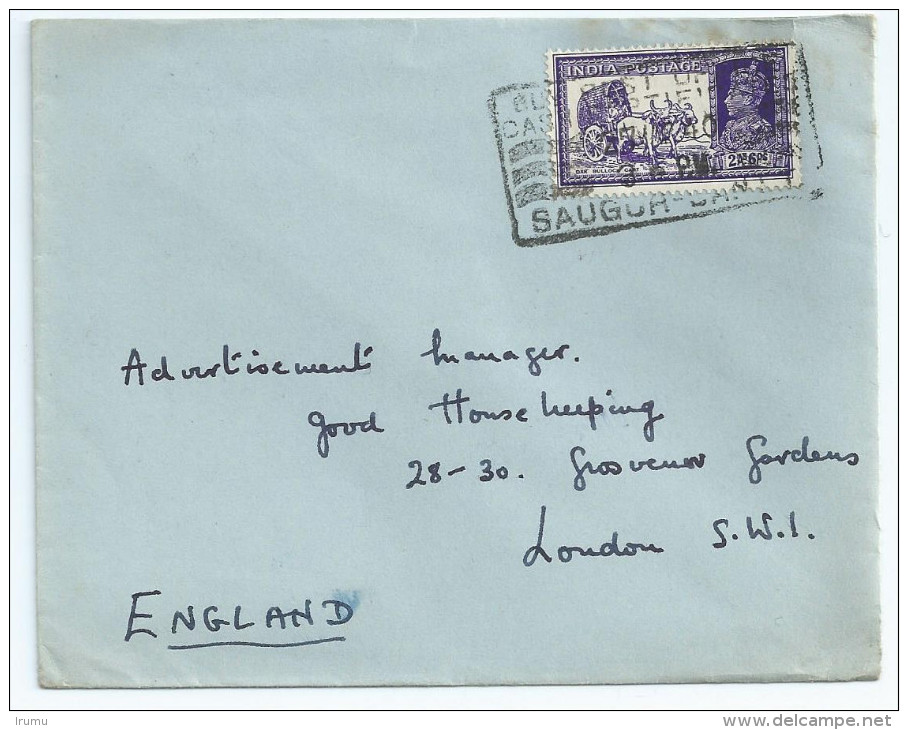 INDIA POSTAGE
DAK BULLOCK CART
2As6Ps
3 PM
SAUGOR-CANTT
Advertisement Manager.
Good Housekeeping
28-30. Grosvenor Gardens
London S.W.1.
ENGLAND
Irumu
delcampe.net